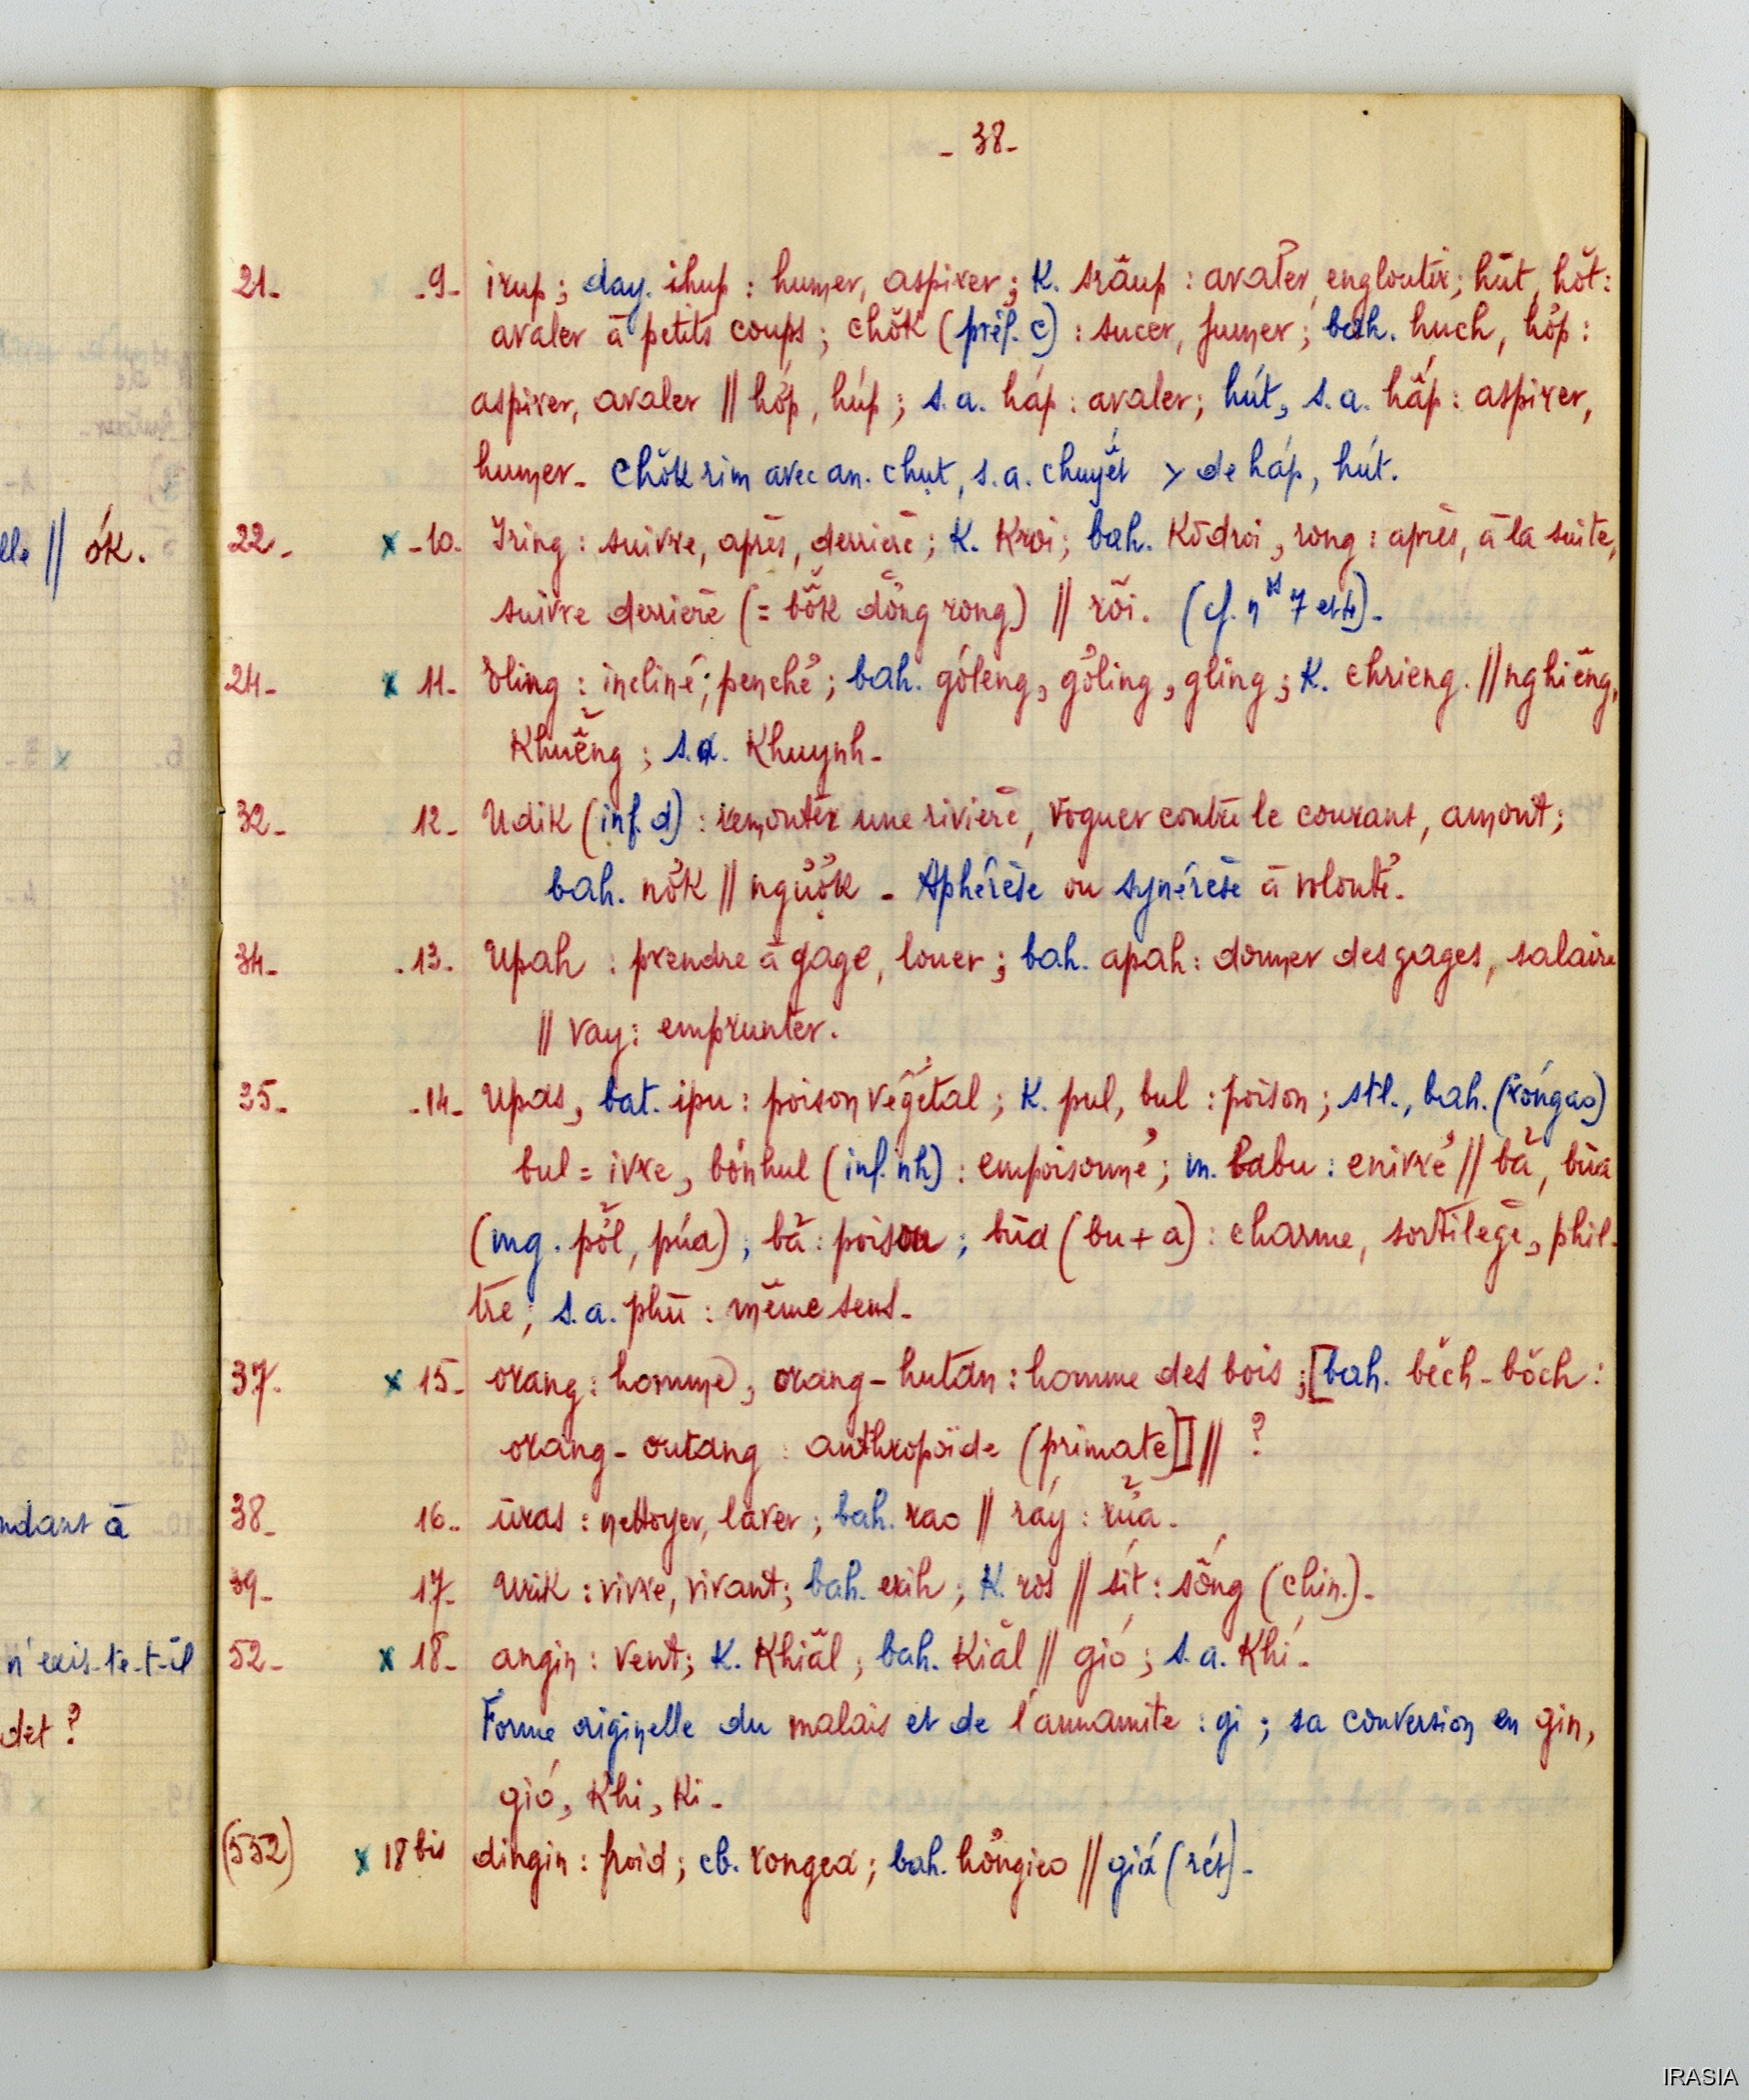 - 38 -
21. - 9 - irup ; day. ihup : humer, aspirer ; K. srâup : avaler, engloutir ; hŭt, hŏt :
avaler à petits coups ; chŏk (préf. c) : sucer, fumer ; bah. huch, hơ̆p :
aspirer, avaler // hóp, húp ; s.a. háp : avaler ; hút, s.a. hấp : aspirer,
humer - chŏk rim avec an. chụt, s.a. chuyết > de háp, hút.
22 - x - 10. Iring : suivre, après, derrière ; K. Kroi ; bah. Kŏdroi, rong : après, à la suite,
suivre derrière (= bŏ̆k dơ̆ng rong) // rồi. (cf. nos 7 et 4) -
24 - x 11 - Iling : incliné, penché ; bah. góleng, gơ̆ling, gling ; K. chrieng. // nghiêng,
Khuễng ; s.a. Khuynh -
32 - 12 - Udik (inf. d) : remonter une rivière, voguer contre le courant, amont ;
bah. nơ̆k // ngược - Aphérèse ou synérèse à volonté.
34 - . 13 - Upah : prendre à gage, louer ; bah. apah : donner des gages, salaire
// vay : emprunter.
35 - . 14 - Upas, bat. ipu : poison végétal ; K. pul, bul : poison ; stl., bah. (róngao)
bul = ivre, bónhul (inf. nh) : empoisonné ; m. babu : enivré // bả, bùa
(mg. pól, púa) ; bả : poison ; bùa (bu + a) : charme, sortilège, phil-
tre ; s.a. phù : même sens -
37. x 15 - orang : homme, orang-hutan : homme des bois ; [bah. bĕch-bŏch :
orang-outang : anthropoïde (primate)] // ?
38 - 16 - uras : nettoyer, laver ; bah. rao // ráy : rửa -
39 - 17 - Urik : vivre, vivant ; bah. erih ; K. ros // sít : sống (chin.) -
52 - x 18 - angin : vent ; K. Khiăl ; bah. Kiăl // gió ; s.a. Khí -
Forme originelle du malais et de l'annamite : gi ; sa conversion en gin,
gió, Khi, Ki -
(552) x 18 bis dingin : froid ; cb. rongea ; bah. hơ̆ngieo // giá (rét) -
lle // ók.
ndant à
n'exis-te-t-il
det ?
IRASIA